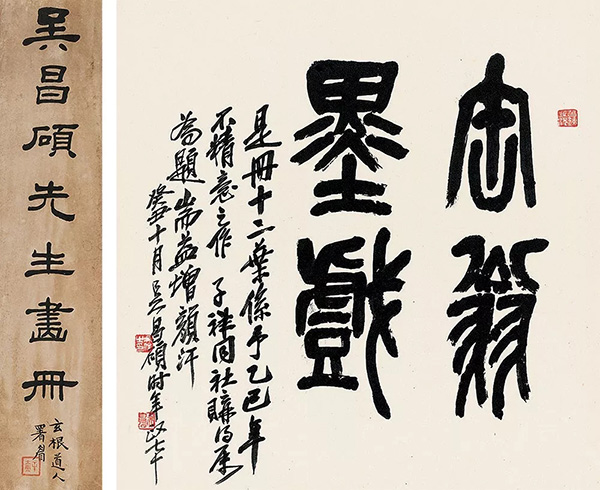 吳昌碩先生畫冊
玄根道人
署眉
缶翁
墨戲
是冊十二葉係予乙巳年
不精意之作 子祥同社購得屬
為題耑益增顏汗
癸丑十月吳昌碩時年政七十